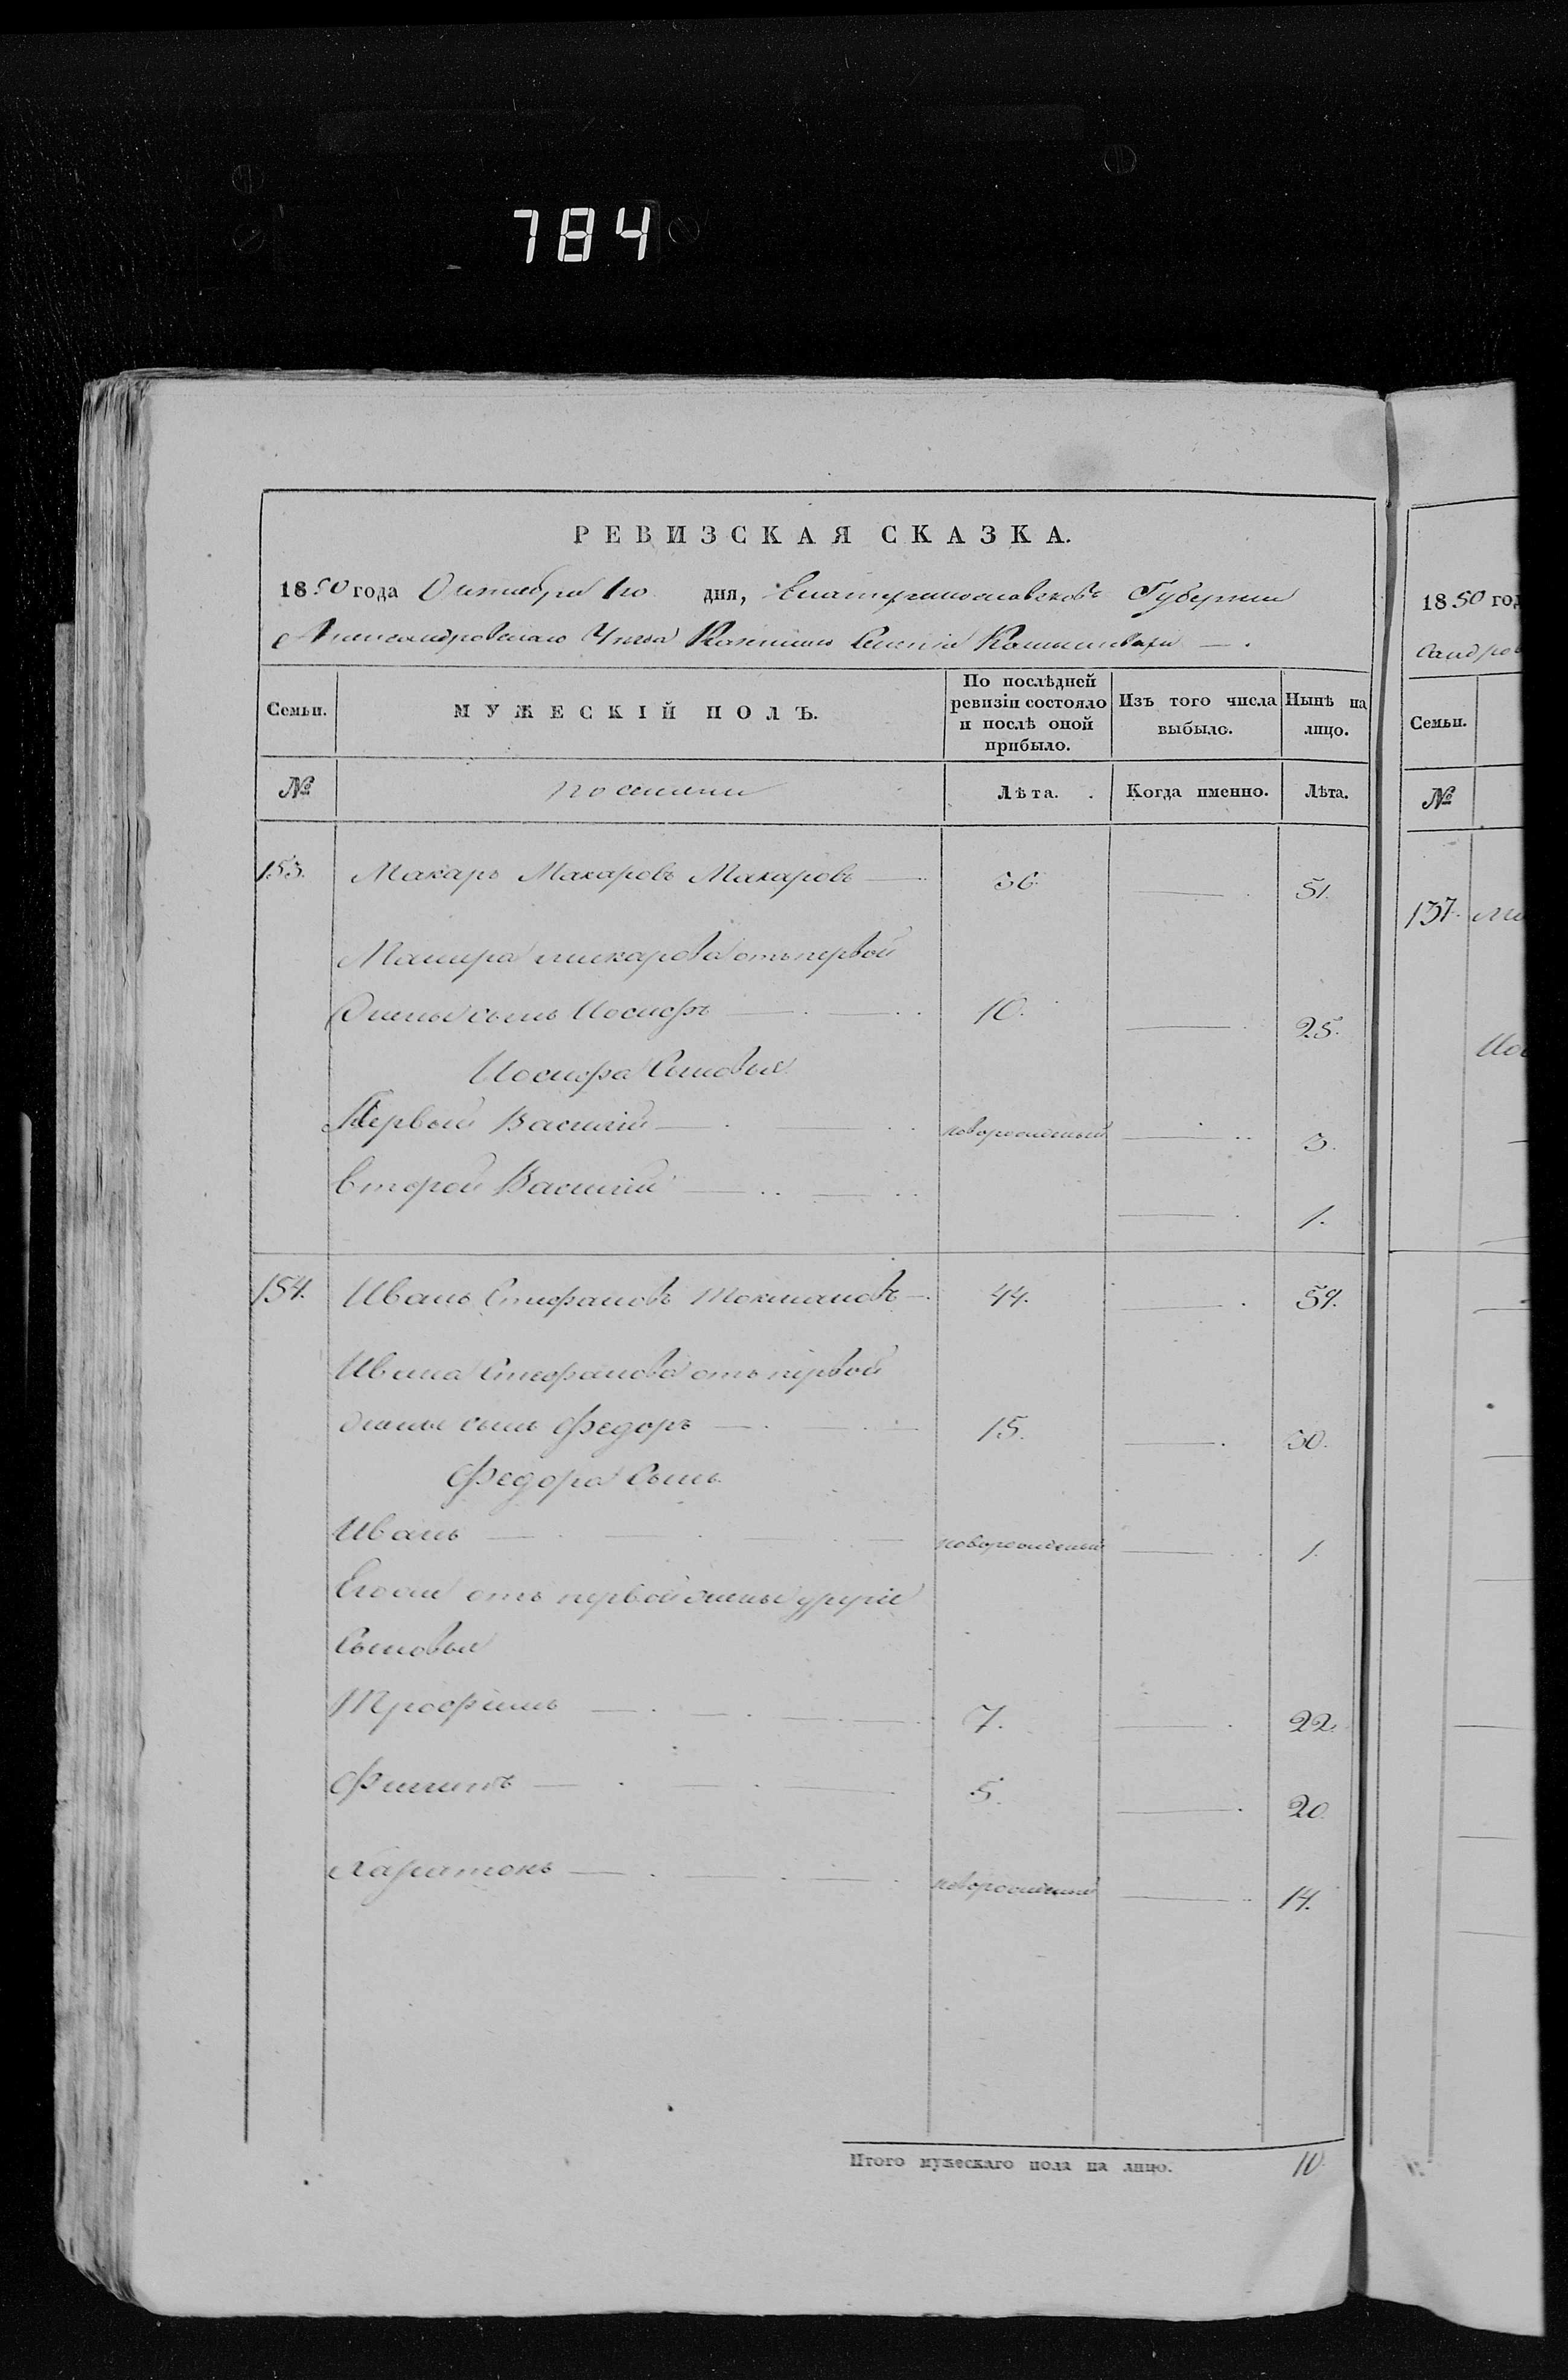 784
РЕВИЗСКАЯ СКАЗКА.
1850 года Октября 1го дня, Екатеринославской Губернии
Александровскаго Уезда Казеннаго Селенія
Семьи. МУЖЕСКІЙ ПОЛЪ. По послѣдней ревизіи состояло и послѣ оной прибыло. Изъ того числа выбыло. Нынѣ на лицо.
№ Лѣта. Когда именно. Лѣта.
153. Макаръ Макаровъ Макаровъ 36. 51.
Макара Макарова отъ первой
жены сынъ Иосифъ 10. 25.
Иосифа Сыновья
Первый Василій новорожденный 3.
Второй Василій 1.
154. Иванъ Стефановъ Токмановъ 44. 59.
Ивана Стефанова отъ первой
жены сынъ Федоръ 15. 30.
Федора Сынъ
Иванъ новорожденный 1.
Его же отъ первой жены другіе
Сыновья
Трофимъ 7. 22.
Филипъ 5. 20.
Харитонъ новорожденный 14.
Итого мужескаго пола на лицо. 10
1850 год
сандров
Семьи.
№
137.